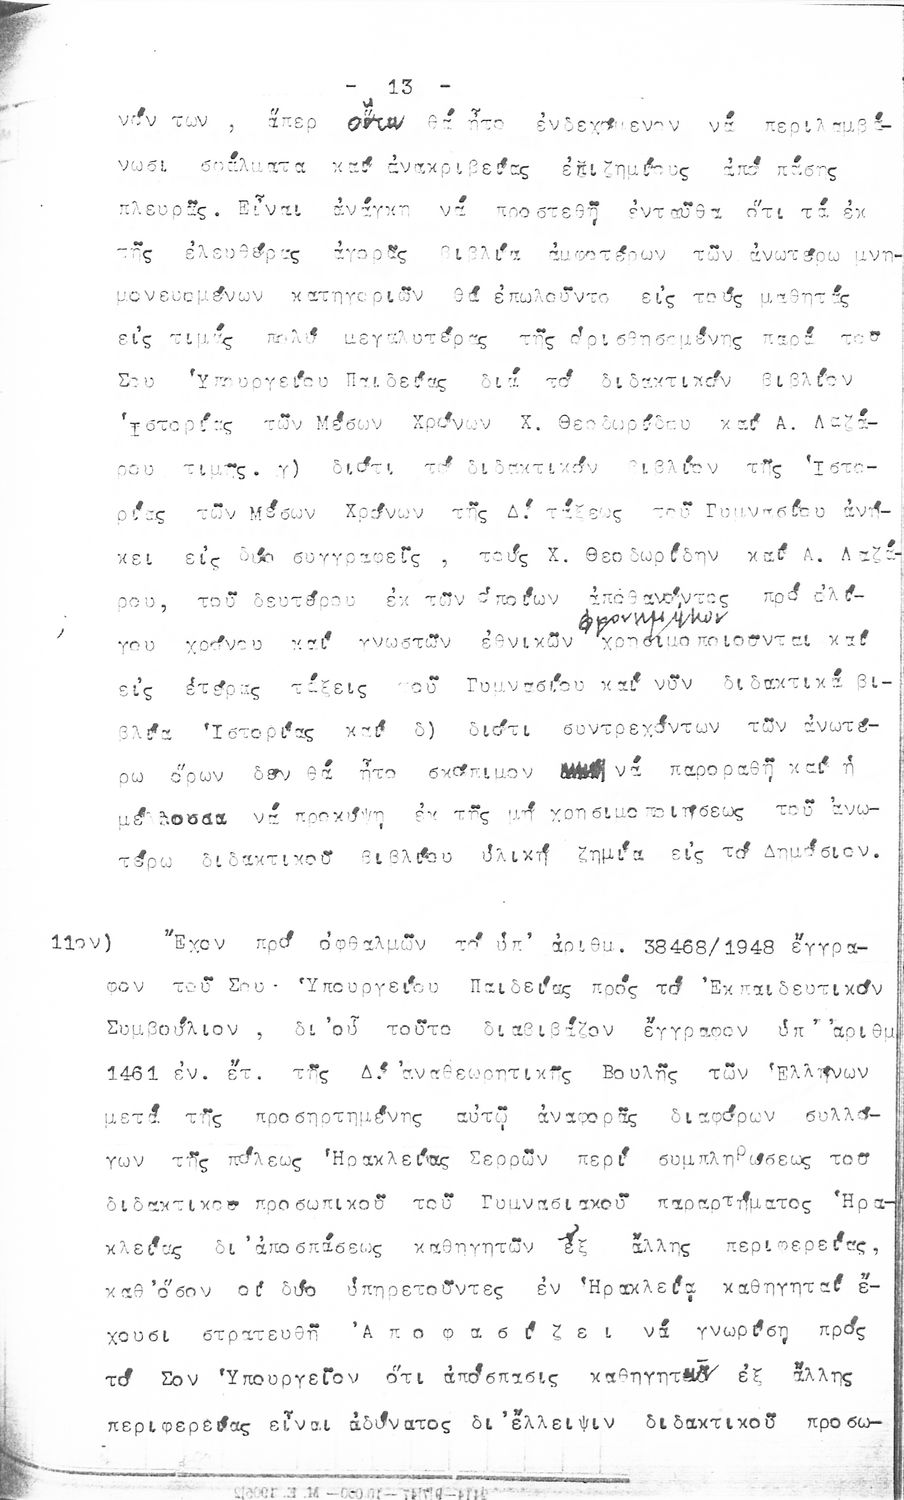 - 13 -
νόν των , ἅπερ οὕτω θά ἦτο ἐνδεχόμενον νά περιλαμβά-
νωσι σφάλματα καί ἀνακριβείας ἐπιζημίους ἀπό πάσης
πλευρᾶς. Εἶναι ἀνάγκη νά προστεθῇ ἐνταῦθα ὅτι τά ἐκ
τῆς ἐλευθέρας ἀγορᾶς βιβλία ἀμφοτέρων τῶν ἀνωτέρω μνη-
μονευομένων κατηγοριῶν θά ἐπωλοῦντο εἰς τούς μαθητάς
εἰς τιμάς πολύ μεγαλυτέρας τῆς ὁρισθησομένης παρά τοῦ
Σου Ὑπουργείου Παιδείας διά τό διδακτικόν βιβλίον
Ἱστορίας τῶν Μέσων Χρόνων Χ. Θεοδωρίδου καί Α. Λαζά-
ρου τιμῆς. γ) διότι τό διδακτικόν βιβλίον τῆς Ἱστο-
ρίας τῶν Μέσων Χρόνων τῆς Δ΄ τάξεως τοῦ Γυμνασίου ἀνή-
κει εἰς δύο συγγραφεῖς , τούς Χ. Θεοδωρίδην καί Α. Λαζά-
ρου, τοῦ δευτέρου ἐκ τῶν ὁποίων ἀποθανόντος πρό ὀλί-
φρονημάτων
γου χρόνου καί γνωστῶν ἐθνικῶν χρησιμοποιοῦνται καί
εἰς ἑτέρας τάξεις τοῦ Γυμνασίου καί νῦν διδακτικά βι-
βλία Ἱστορίας καί δ) διότι συντρεχόντων τῶν ἀνωτέ-
ρω ὅρων δέν θά ἦτο σκόπιμον νά παροραθῇ καί ἡ
μέλλουσα νά προκύψῃ ἐκ τῆς μή χρησιμοποιήσεως τοῦ ἀνω-
τέρω διδακτικοῦ βιβλίου ὑλική ζημία εἰς τό Δημόσιον.
11ον) Ἔχον πρό ὀφθαλμῶν τό ὑπ' ἀριθμ. 38468/1948 ἔγγρα-
φον τοῦ Σου Ὑπουργείου Παιδείας πρός τό Ἐκπαιδευτικόν
Συμβούλιον , δι'οὗ τοῦτο διαβιβάζον ἔγγραφον ὑπ' ἀριθμ
1461 ἐν. ἔτ. τῆς Δ΄ἀναθεωρητικῆς Βουλῆς τῶν Ἑλλήνων
μετά τῆς προσηρτημένης αὐτῷ ἀναφορᾶς διαφόρων συλλό-
γων τῆς πόλεως Ἡρακλείας Σερρῶν περί συμπληρώσεως τοῦ
διδακτικοῦ προσωπικοῦ τοῦ Γυμνασιακοῦ παραρτήματος Ἡρα-
κλείας δι'ἀποσπάσεως καθηγητῶν ἐξ ἄλλης περιφερείας,
καθ'ὅσον οἱ δύο ὑπηρετοῦντες ἐν Ἡρακλείᾳ καθηγηταί ἔ-
χουσι στρατευθῆ Ἀ π ο φ α σ ί ζ ε ι νά γνωρίσῃ πρός
τό Σον Ὑπουργεῖον ὅτι ἀπόσπασις καθηγητοῦ ἐξ ἄλλης
περιφερείας εἶναι ἀδύνατος δι'ἔλλειψιν διδακτικοῦ προσω-